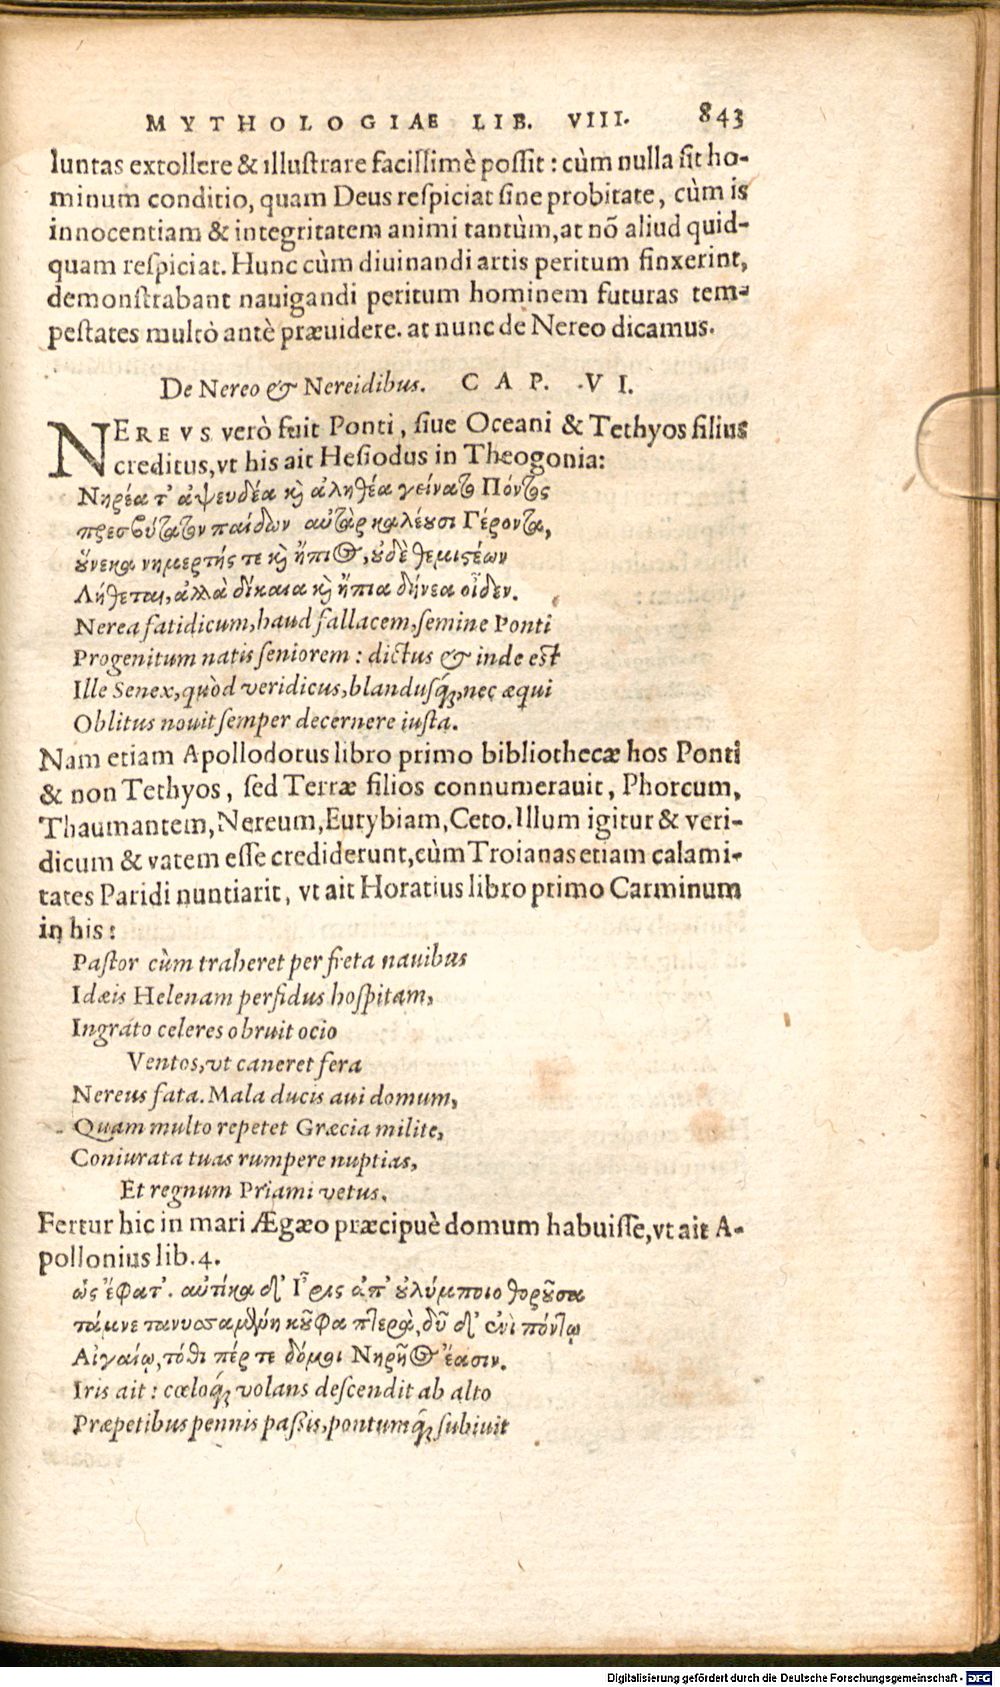 MYTHOLOGIAE LIB. VIII. 843
luntas extollere & illustrare facillimè possit: cùm nulla sit ho-
minum conditio, quam Deus respiciat sine probitate, cùm is
innocentiam & integritatem animi tantùm, at nõ aliud quid-
quam respiciat. Hunc cùm diuinandi artis peritum finxerint,
demonstrabant nauigandi peritum hominem futuras tem-
pestates multò antè præuidere. at nunc de Nereo dicamus.
De Nereo & Nereidibus. CAP. VI.
NEREVS verò fuit Ponti, siue Oceani & Tethyos filius
creditus, vt his ait Hesiodus in Theogonia:
Νηρέα τ' ἀψευδέα καὶ ἀληθέα γείνατο Πόντος
πρεσβύτατον παίδων αὐτὰρ καλέουσι Γέροντα,
οὕνεκα νημερτής τε καὶ ἤπιος, οὐδὲ θεμιστέων
Λήθεται, ἀλλὰ δίκαια καὶ ἤπια δήνεα οἶδεν.
Nerea fatidicum, haud fallacem, semine Ponti
Progenitum natis seniorem: dictus & inde est
Ille Senex, quòd veridicus, blandusq́;, nec æqui
Oblitus nouit semper decernere iusta.
Nam etiam Apollodorus libro primo bibliothecæ hos Ponti
& non Tethyos, sed Terræ filios connumerauit, Phorcum,
Thaumantem, Nereum, Eurybiam, Ceto. Illum igitur & veri-
dicum & vatem esse crediderunt, cùm Troianas etiam calami-
tates Paridi nuntiarit, vt ait Horatius libro primo Carminum
in his:
Pastor cùm traheret per freta nauibus
Idæis Helenam perfidus hospitam,
Ingrato celeres obruit ocio
Ventos, vt caneret fera
Nereus fata. Mala ducis aui domum,
Quam multo repetet Græcia milite,
Coniurata tuas rumpere nuptias,
Et regnum Priami vetus.
Fertur hic in mari Ægæo præcipuè domum habuisse, vt ait A-
pollonius lib. 4.
ὣς ἔφατ'. αὐτίκα δ' Ἶρις ἀπ' οὐλύμποιο θοροῦσα
τάμνε τανυσσαμένη κοῦφα πτερὰ, δῦ δ' ἐνὶ πόντῳ
Αἰγαίῳ, τόθι πέρ τε δόμοι Νηρῆος ἔασιν.
Iris ait: cœloq́; volans descendit ab alto
Præpetibus pennis passis, pontumq́; subiuit
Digitalisierung gefördert durch die Deutsche Forschungsgemeinschaft - DFG